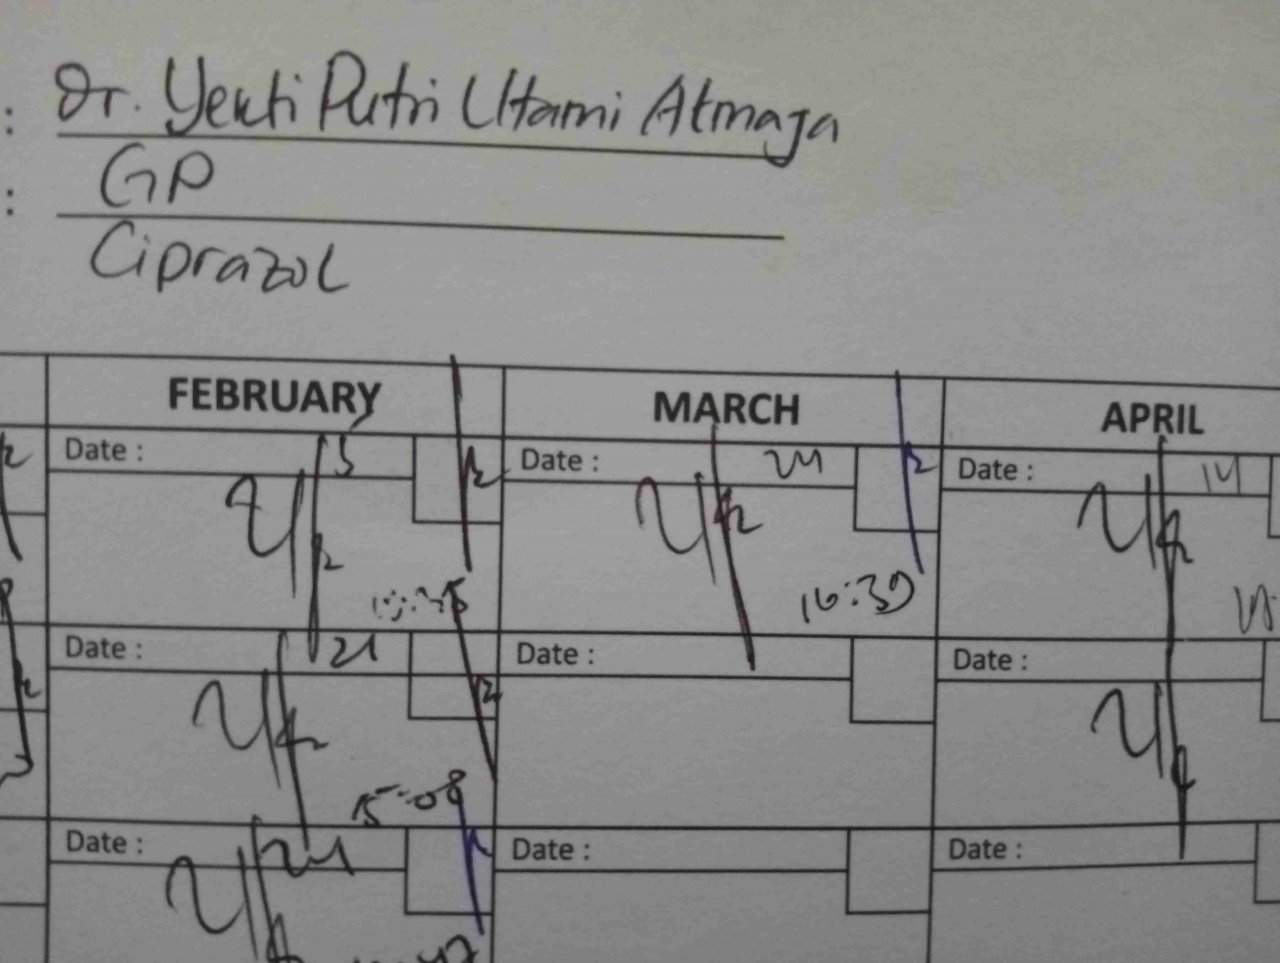 : Dr. Yenti Putri Utami Atmaja
: GP
Ciprazol
FEBRUARY MARCH APRIL
Date : 5 Date : 24 Date : 14
16:39
Date : 21 Date : Date :
15:08
Date : 24 Date : Date :